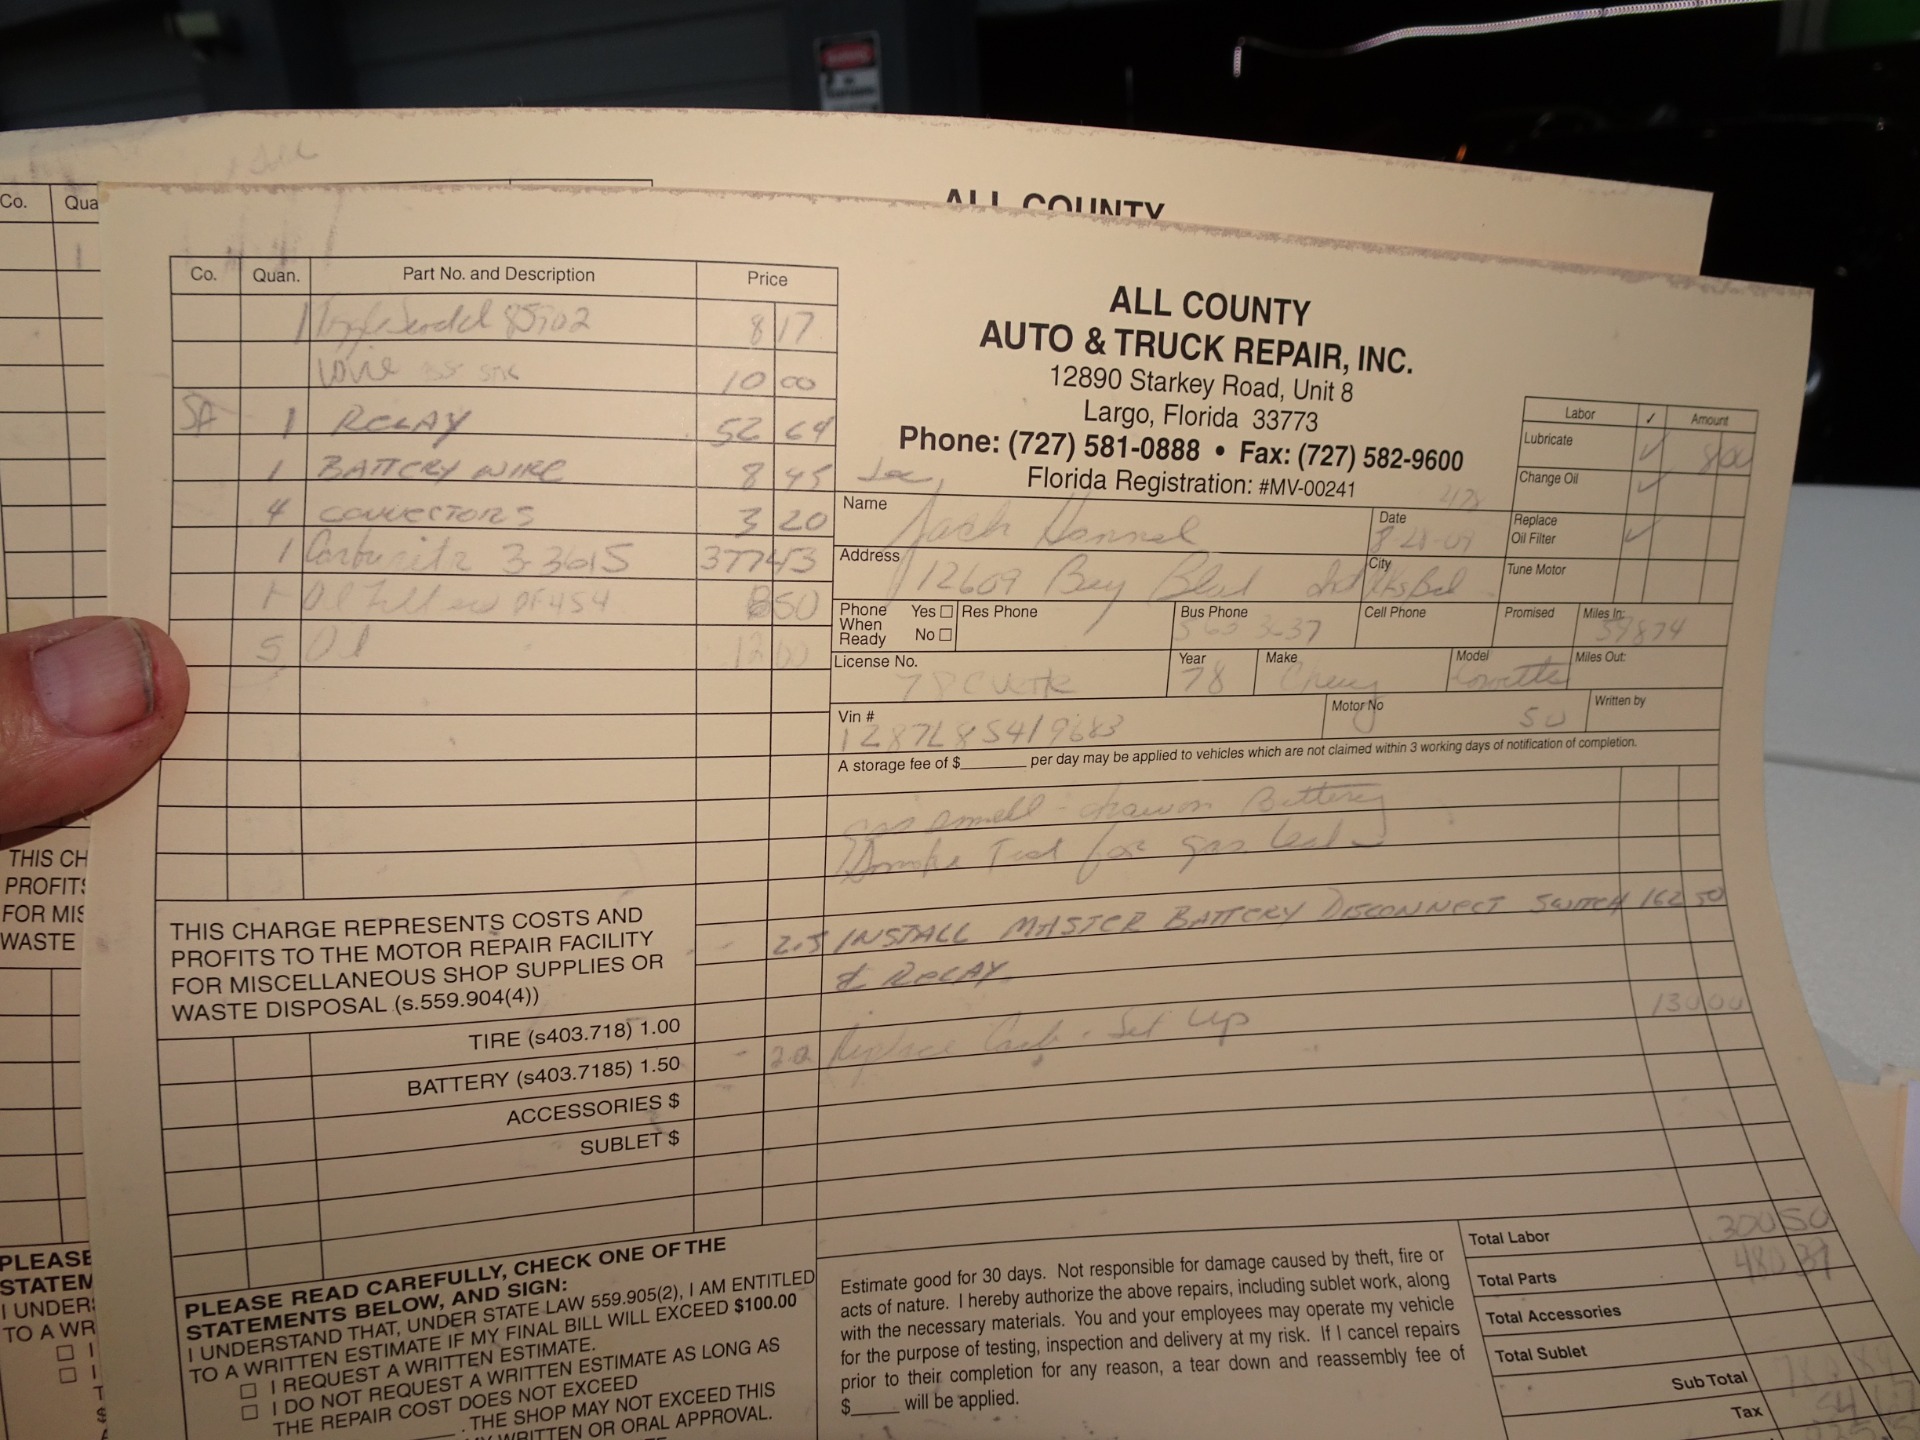 ALL COUNTY
Co.
Qua
1
Co. Quan. Part No. and Description Price
1 85902 8 17
10 00
SA 1 RELAY 52 64
1 BATTERY WIRE 8 45
4 CONNECTORS 3 20
1 3-3615 377 53
1 Oil Filter 8 50
5 Oil 12 00
ALL COUNTY
AUTO & TRUCK REPAIR, INC.
12890 Starkey Road, Unit 8
Largo, Florida 33773
Phone: (727) 581-0888 • Fax: (727) 582-9600
Florida Registration: #MV-00241
Labor ✓ Amount
Lubricate ✓ 8 00
Change Oil ✓
Replace
Oil Filter ✓
Tune Motor
Name Jack
Date 8-28-09
Address 12609 Bay Blvd
City
Phone
When
Ready
Yes □
No □
Res Phone
Bus Phone
Cell Phone
Promised
Miles In: 59874
License No. 78
Year 78
Make Chevy
Model Corvette
Miles Out:
Vin # 1Z87L8S419683
Motor No
Written by
A storage fee of $ per day may be applied to vehicles which are not claimed within 3 working days of notification of completion.
gas smell - Battery
Test for gas leak
2.5 INSTALL MASTER BATTERY DISCONNECT SWITCH 162 50
& RELAY
2.0 Replace Carb - Set Up 130 00
THIS CHARGE REPRESENTS COSTS AND
PROFITS TO THE MOTOR REPAIR FACILITY
FOR MISCELLANEOUS SHOP SUPPLIES OR
WASTE DISPOSAL (s.559.904(4))
TIRE (s403.718) 1.00
BATTERY (s403.7185) 1.50
ACCESSORIES $
SUBLET $
PLEASE READ CAREFULLY, CHECK ONE OF THE
STATEMENTS BELOW, AND SIGN:
I UNDERSTAND THAT, UNDER STATE LAW 559.905(2), I AM ENTITLED
TO A WRITTEN ESTIMATE IF MY FINAL BILL WILL EXCEED $100.00
□ I REQUEST A WRITTEN ESTIMATE.
□ I DO NOT REQUEST A WRITTEN ESTIMATE AS LONG AS
THE REPAIR COST DOES NOT EXCEED
. THE SHOP MAY NOT EXCEED THIS
WRITTEN OR ORAL APPROVAL.
Estimate good for 30 days. Not responsible for damage caused by theft, fire or
acts of nature. I hereby authorize the above repairs, including sublet work, along
with the necessary materials. You and your employees may operate my vehicle
for the purpose of testing, inspection and delivery at my risk. If I cancel repairs
prior to their completion for any reason, a tear down and reassembly fee of
$ will be applied.
Total Labor 300 50
Total Parts 480 39
Total Accessories
Total Sublet
Sub Total 780.89
Tax
THIS CH
PROFITS
FOR MIS
WASTE
PLEASE
STATEM
I UNDERS
TO A WR
□ I
□ I
T
$